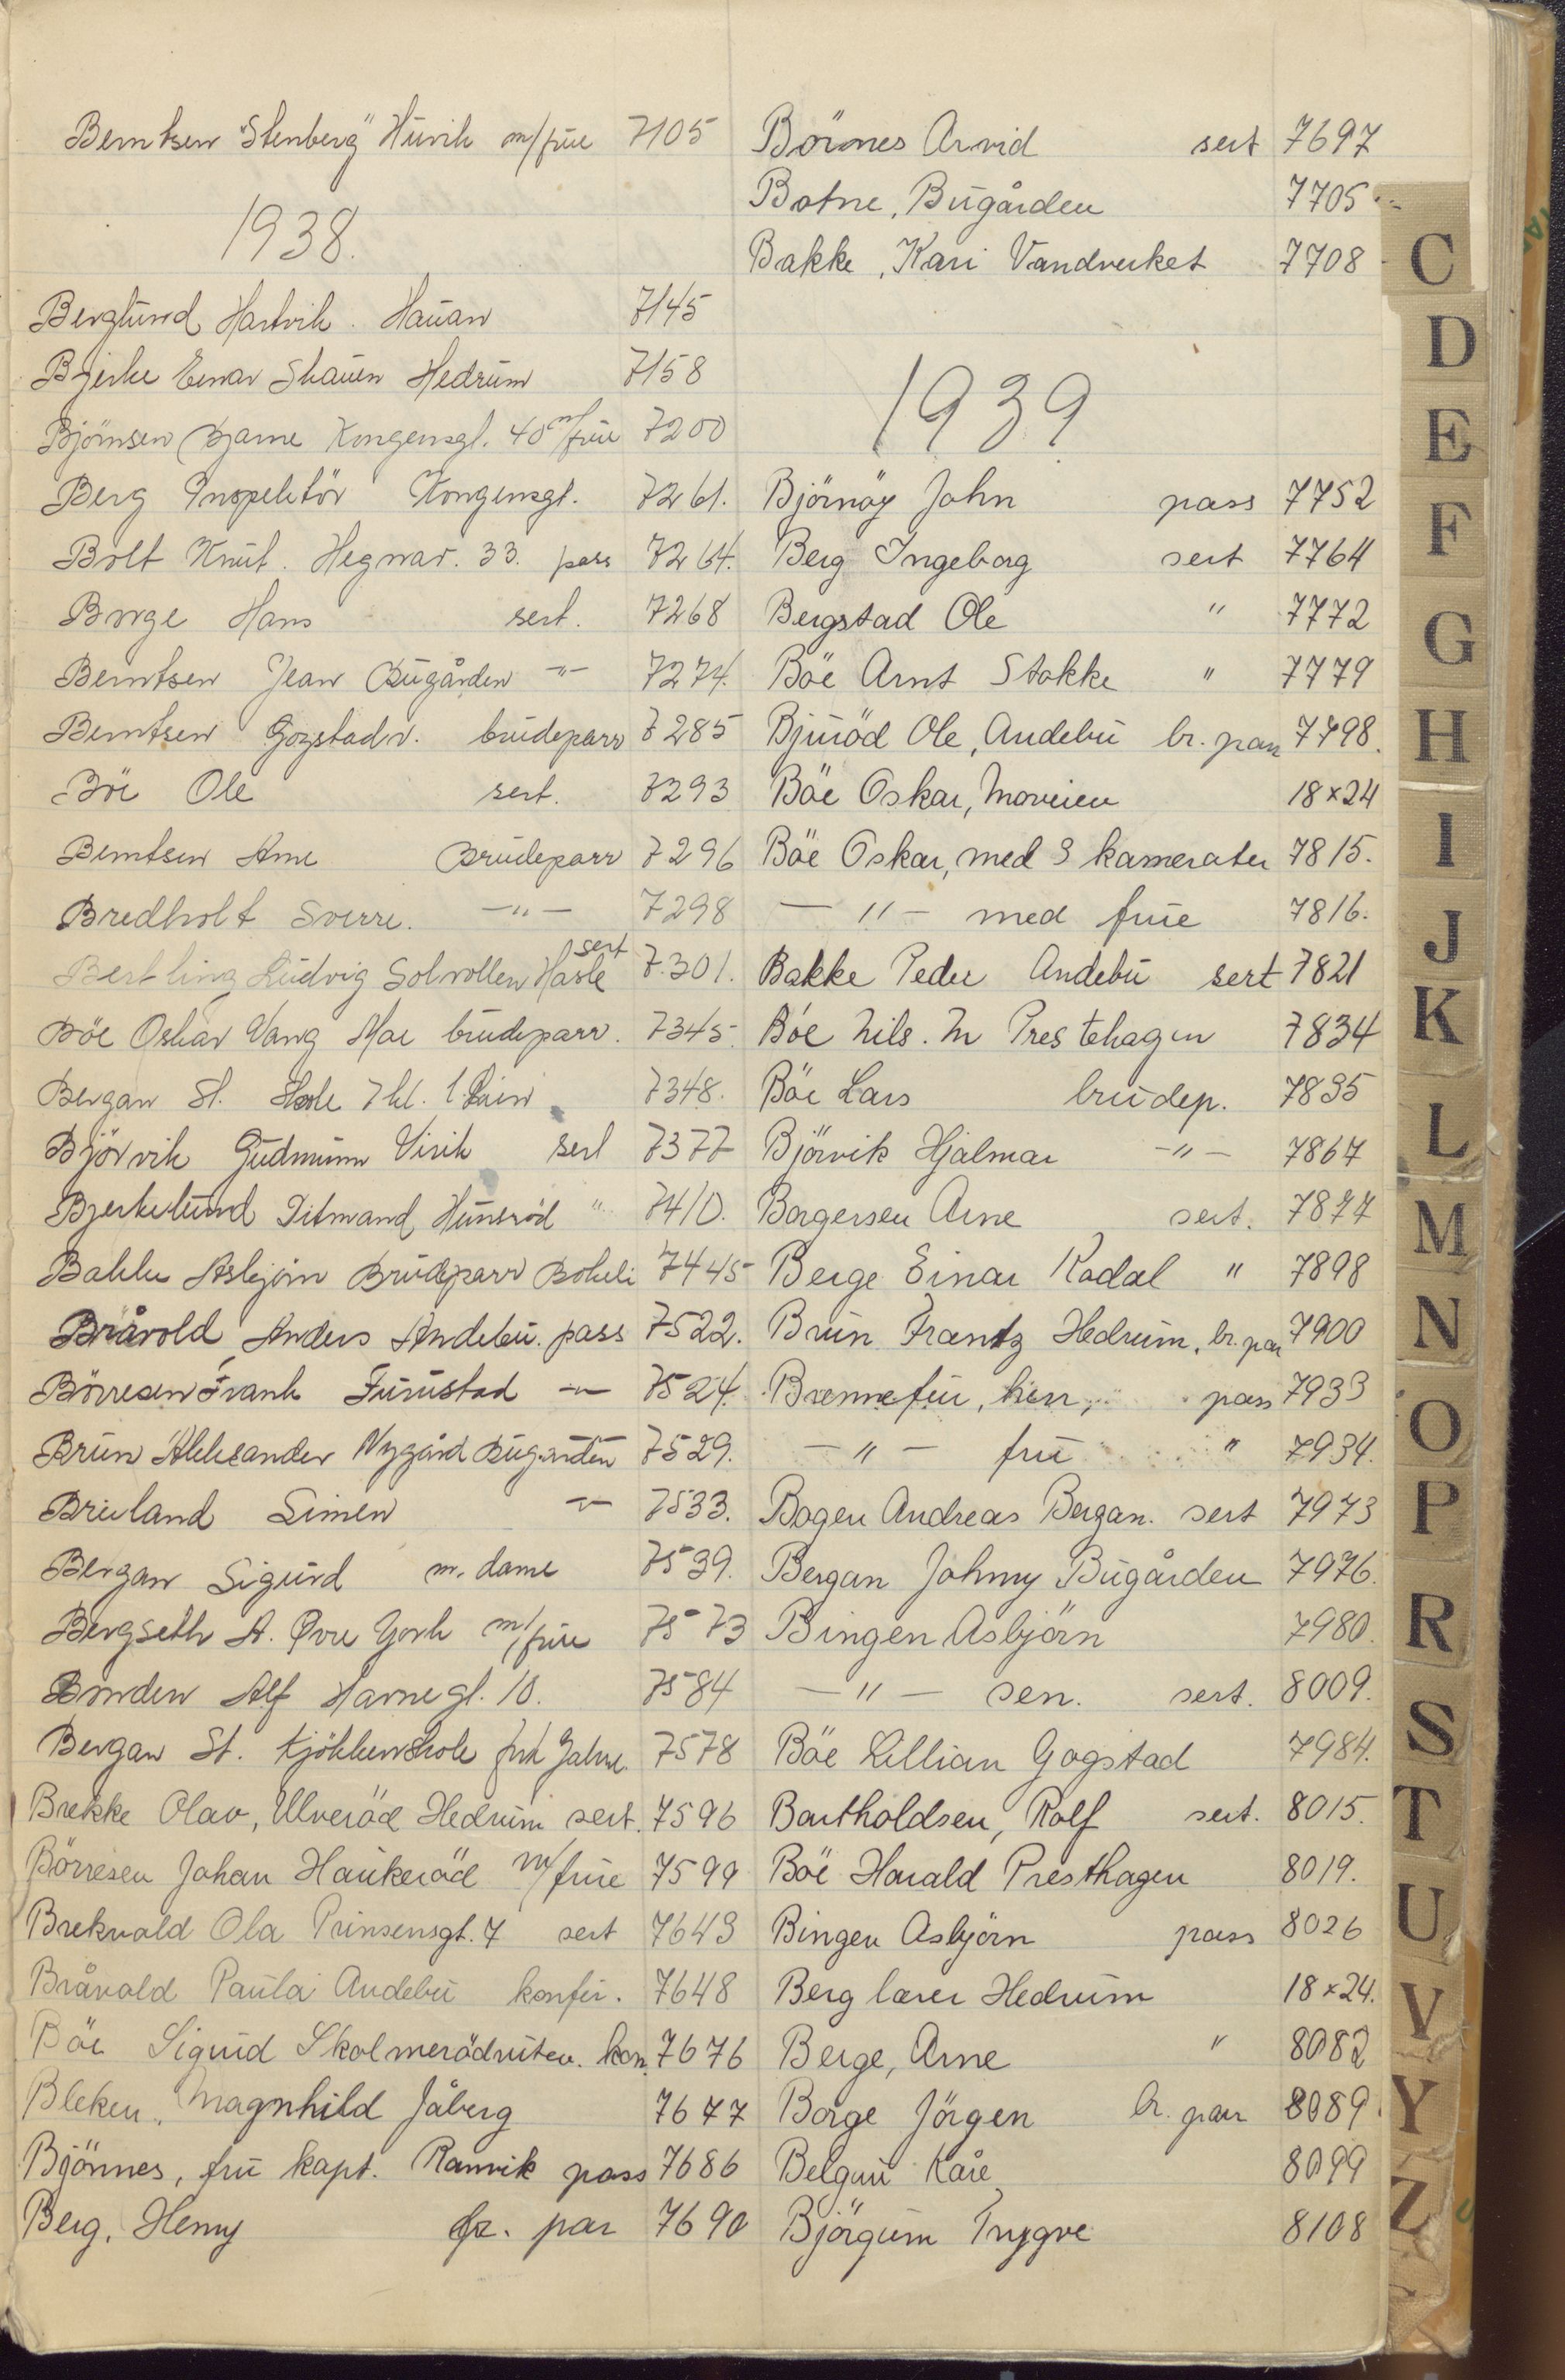 Berntsen "Stenberg" Huvik m/frue 7105
1938.
Berglund Hartvik. Hauan 7145
Bjerke Einar Skauen Hedrum 7158
Björnsen Bjarne Kongensgt. 40 m/frue 7200
Berg Inspektör Kongensgt. 7261.
Bolt Knut. Hegnav. 33. pass 7264.
Borge Hans sert. 7268
Berntsen Jean Bugården -"- 7274.
Berntsen Gogstadv. brudeparr 7285
Böe Ole sert. 7293
Berntsen Arne Brudeparr 7296
Bredholt Sverre. -"- 7298
Bertling Ludvig Solvollen Hasle sert 7301.
Böe Oskar Vang Moe brudeparr. 7345.
Bergan St. Skole 7 kl. 7348.
Björvik Gudmunn Virik sert 7377
Bjerkelund Ditmand Hunsröd " 7410.
Bakke Asbjörn Brudeparr Bokeli 7445
Bråvold Anders Andebu. pass 7522.
Börresen Frank Furustad -"- 7524.
Brun Aleksander Nygård Bugården 7529.
Breiland Simen -"- 7533.
Bergan Sigurd m. dame 7539.
Bergseth A. Øvre Gjorh m/frue 7573
Brinden Alf Havnegt. 10. 7584
Bergan St. Kjökkenskole frk Jahre. 7578
Brekke Olav, Ulveröd Hedrum sert. 7596
Börresen Johan Haukeröd m/frue 7599
Brekvald Ola Prinsensgt. 7 sert 7643
Bråvald Paula Andebu konfir. 7648
Böe Sigurd Skolmerödruten. kon. 7676
Bleken, Magnhild Jåberg 7677
Bjönnes, fru kapt. Ramvik pass 7686
Berg, Henry br. par 7690
Börnes Arvid sert 7697
Botne, Bugården 7705
Bakke, Kari Vandverket 7708
1939
Björnöy John pass 7752
Berg Ingeborg sert 7764
Bergstad Ole " 7772
Böe Arnt Stokke " 7779
Bjuröd Ole, Andebu br. par 7798.
Böe Oskar, Moveien 18×24
Böe Oskar, med 3 kamerater 7815.
-"- med frue 7816.
Bakke Peder Andebu sert 7821
Böe Nils. M Prestehagen 7834
Böe Lars brudep. 7835
Björvik Hjalmar -"- 7867
Borgersen Arne sert. 7877
Berge Einar Kodal " 7898
Brun Frantz Hedrum, br. par 7900
Brennefur, herr, pass 7933
-"- fru " 7934.
Bogen Andreas Bergan. sert 7973
Bergan Johnny Bugården 7976.
Bingen Asbjörn 7980.
-"- sen. sert. 8009.
Böe Lillian Gogstad 7984.
Bartholdsen, Rolf sert. 8015.
Böe Harald Presthagen 8019.
Bingen Asbjörn pass 8026
Berg lærer Hedrum 18×24.
Berge, Arne " 8082
Borge Jörgen br. par 8089.
Belgum Kåre 8099
Björgum Trygve 8108
C
D
E
F
G
H
I
J
K
L
M
N
O
P
R
S
T
U
V
Y
Z